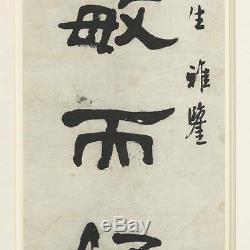 生雅鑒
敏而